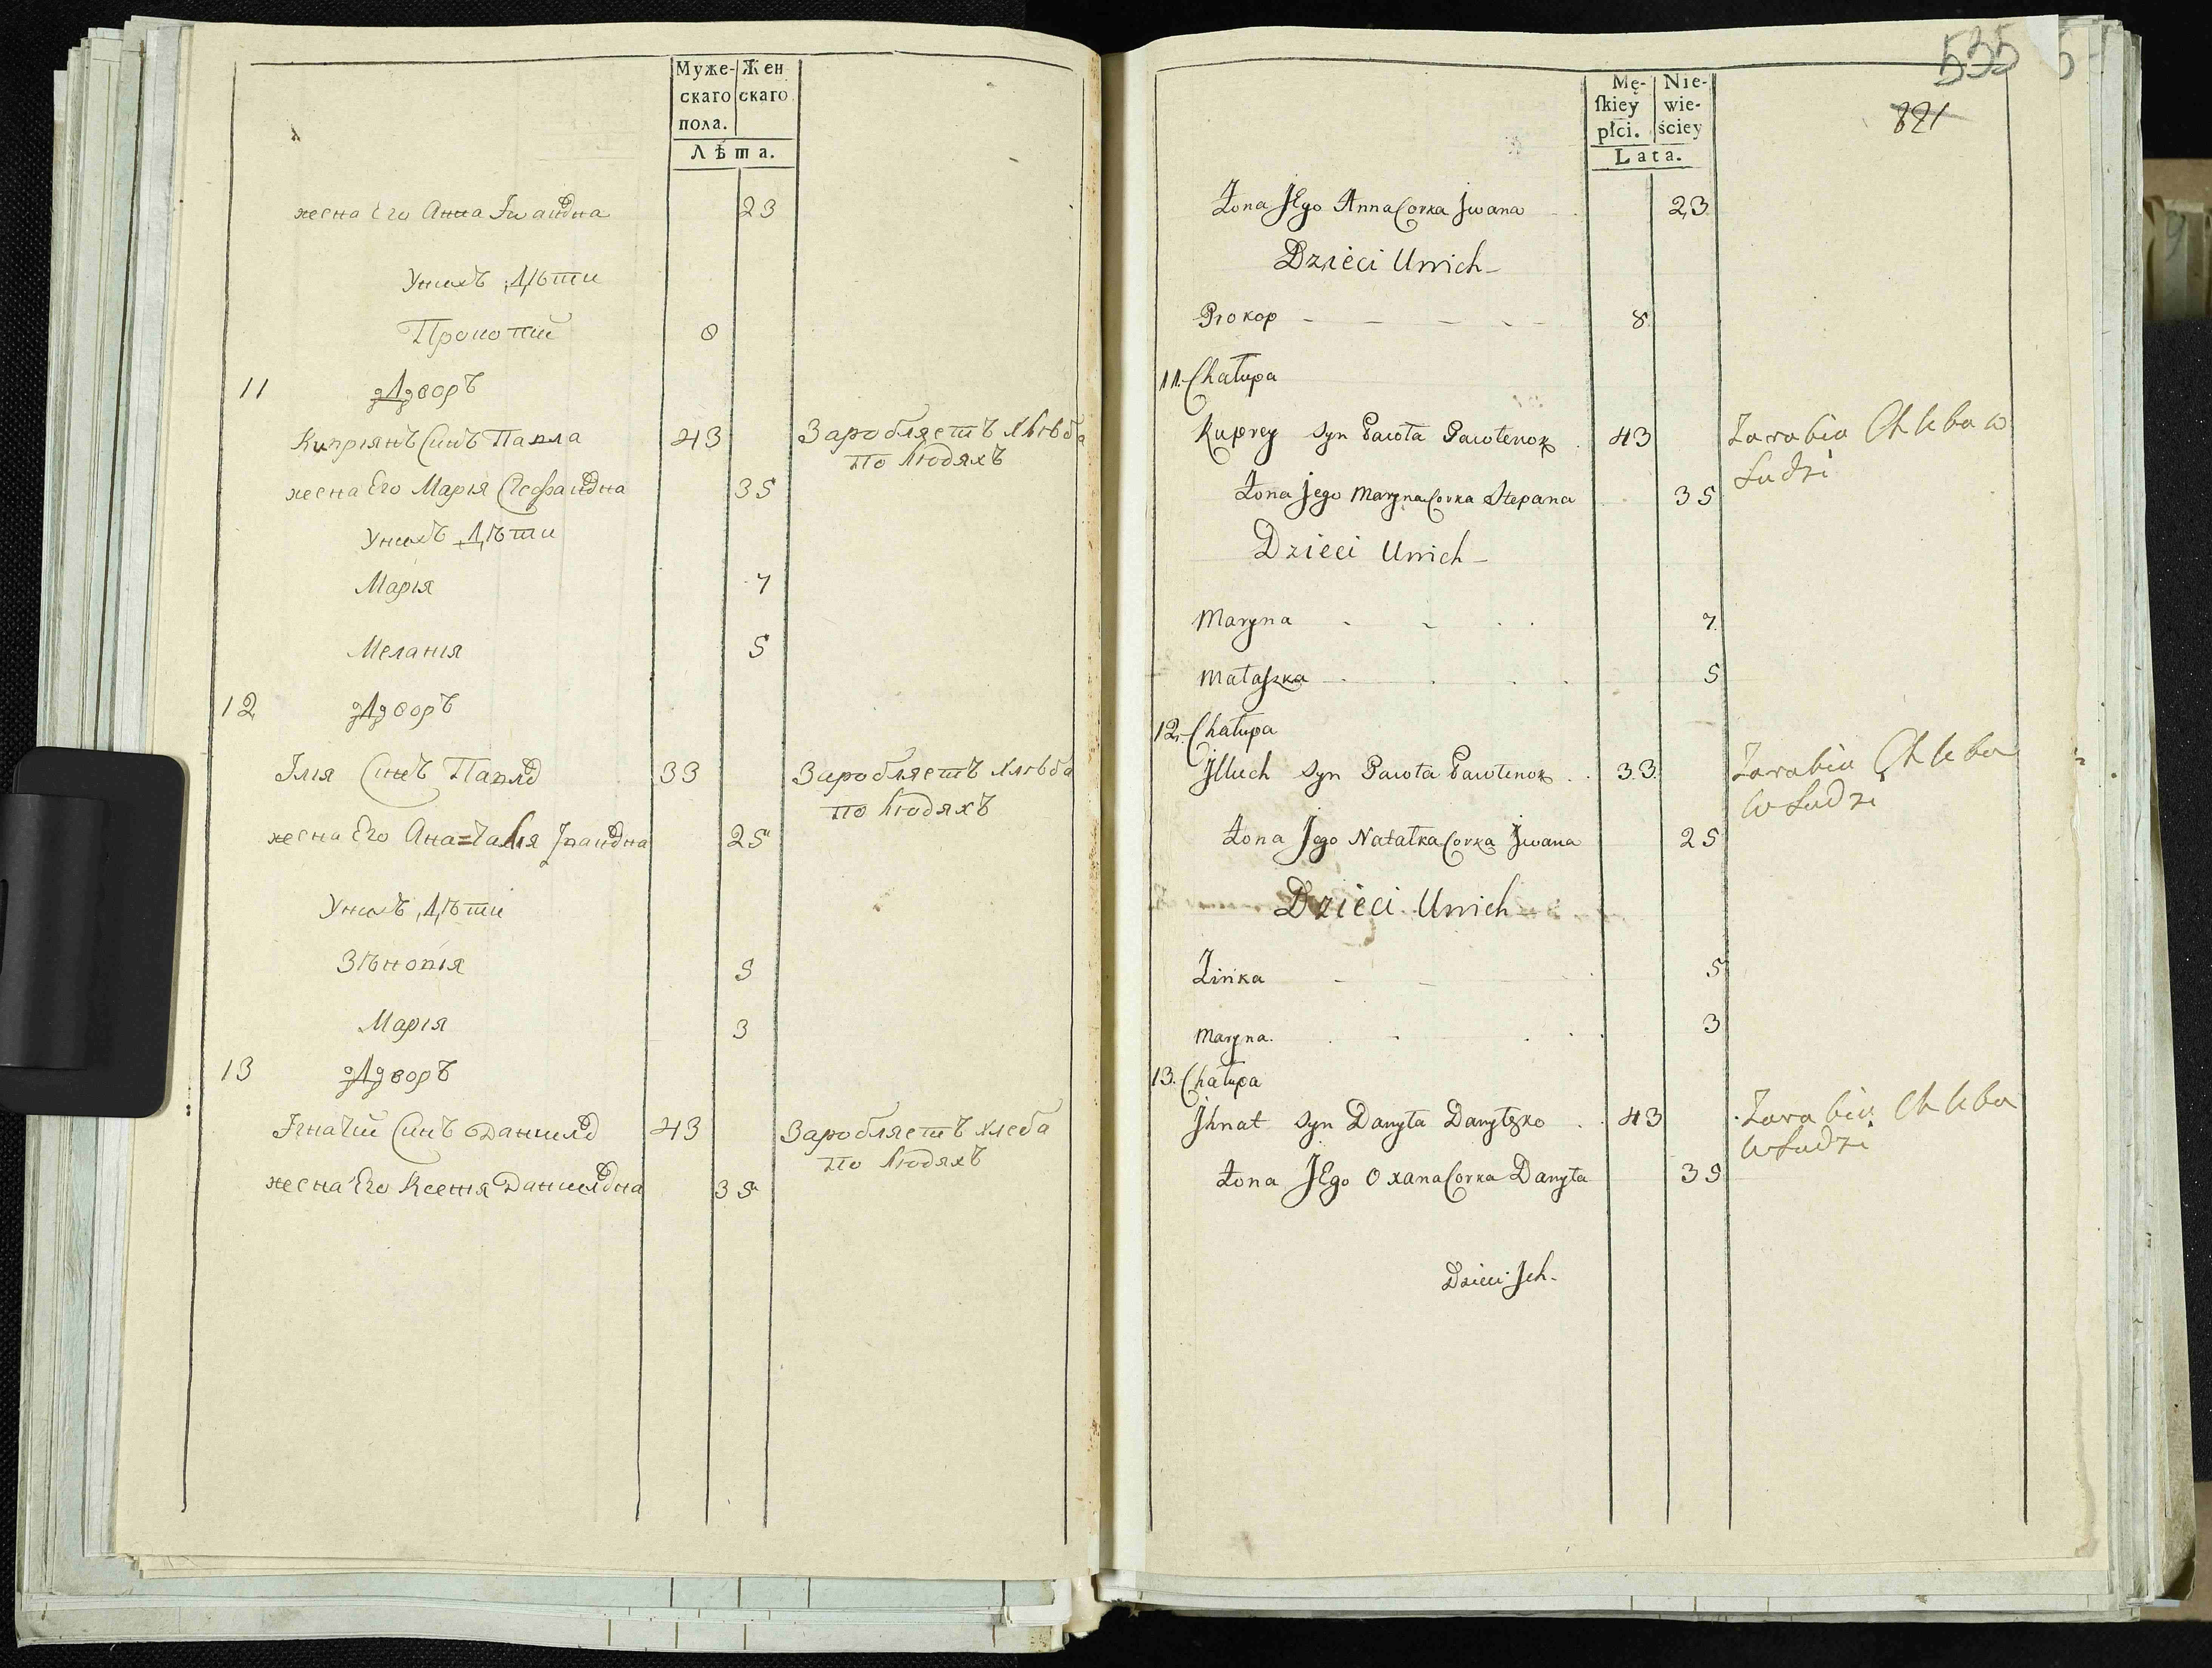 Муже- Жен
скаго скаго
пола.
Лѣта.
жена Его Анна Іванова 23
Унихъ Дѣти
Прокопий 8
11 Дворъ
Киприянъ Синъ Павла 43 Заробляетъ Хлѣба
по людяхъ
жена Его Марія Стефанова 35
Унихъ Дѣти
Марія 7
Меланія 5
12 Дворъ
Ілія Синъ Павла 33 Заробляетъ хлѣба
по людяхъ
жена Его Іванова 25
Унихъ Дѣти
Зѣновія 5
Марія 3
13 Дворъ
Ігнатій Синъ Данила 43 Заробляетъ хлеба
по людяхъ
жена Его Ксенія Данилова 35
535
Mę- Nie-
ſkiey wie-
płci. ściey
821
Lata.
Żona JEgo Anna Corka Jwana 23
Dzieci Unich
Prokop 8
11. Chałupa
Kuprey syn Pawła Pawlenok 43 Zarabia Chleba w
Ludzi
Żona jego Maryna Corka Stepana 35
Dzieci Unich
Maryna 7
Małaszka 5
12. Chałupa
Jlluch syn Pawła Pawlenok 33 Zarabia Chleba
w Ludzi
Żona Jego Natalka Corka Jwana 25
Dzieci Unich
Zinka 5
Maryna 3
13. Chałupa
Jhnat syn Daniła Danyłzko 43 Zarabia Chleba
w Ludzi
Żona JEgo Oxana Corka Danyła 35
Dzieci Jch